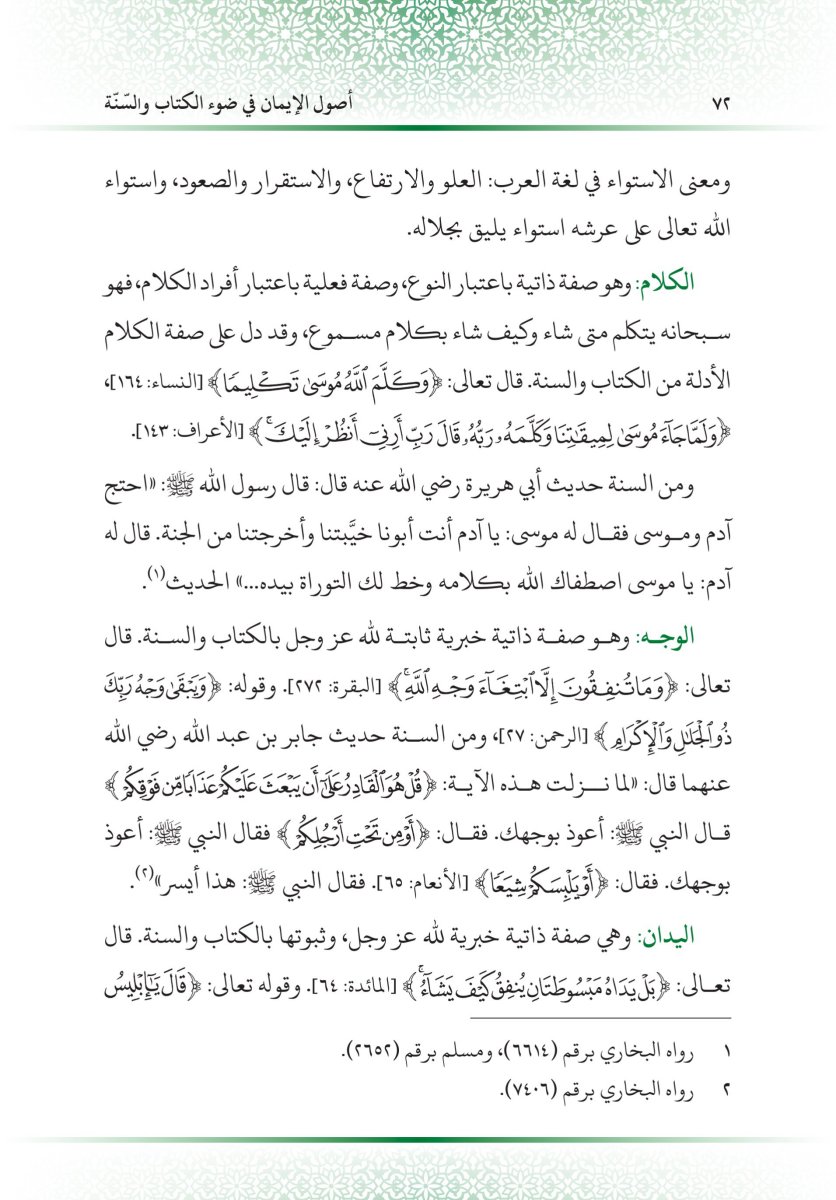 ٧٢ أصول الإيمان في ضوء الكتاب والسّنّة
ومعنى الاستواء في لغة العرب: العلو والارتفاع، والاستقرار والصعود، واستواء
الله تعالى على عرشه استواء يليق بجلاله.
الكلام: وهو صفة ذاتية باعتبار النوع، وصفة فعلية باعتبار أفراد الكلام، فهو
سبحانه يتكلم متى شاء وكيف شاء بكلام مسموع، وقد دل على صفة الكلام
الأدلة من الكتاب والسنة. قال تعالى: ﴿وَكَلَّمَ ٱللَّهُ مُوسَىٰ تَكۡلِيمٗا﴾ [النساء: ١٦٤]،
﴿وَلَمَّا جَآءَ مُوسَىٰ لِمِيقَٰتِنَا وَكَلَّمَهُۥ رَبُّهُۥ قَالَ رَبِّ أَرِنِيٓ أَنظُرۡ إِلَيۡكَۚ﴾ [الأعراف: ١٤٣].
ومن السنة حديث أبي هريرة رضي الله عنه قال: قال رسول الله ﷺ: «احتج
آدم وموسى فقال له موسى: يا آدم أنت أبونا خيَّبتنا وأخرجتنا من الجنة. قال له
آدم: يا موسى اصطفاك الله بكلامه وخط لك التوراة بيده...» الحديث(١).
الوجه: وهو صفة ذاتية خبرية ثابتة لله عز وجل بالكتاب والسنة. قال
تعالى: ﴿وَمَا تُنفِقُونَ إِلَّا ٱبۡتِغَآءَ وَجۡهِ ٱللَّهِۚ﴾ [البقرة: ٢٧٢]. وقوله: ﴿وَيَبۡقَىٰ وَجۡهُ رَبِّكَ
ذُو ٱلۡجَلَٰلِ وَٱلۡإِكۡرَامِ﴾ [الرحمن: ٢٧]، ومن السنة حديث جابر بن عبد الله رضي الله
عنهما قال: «لما نزلت هذه الآية: ﴿قُلۡ هُوَ ٱلۡقَادِرُ عَلَىٰٓ أَن يَبۡعَثَ عَلَيۡكُمۡ عَذَابٗا مِّن فَوۡقِكُمۡ﴾
قال النبي ﷺ: أعوذ بوجهك. فقال: ﴿أَوۡ مِن تَحۡتِ أَرۡجُلِكُمۡ﴾ فقال النبي ﷺ: أعوذ
بوجهك. فقال: ﴿أَوۡ يَلۡبِسَكُمۡ شِيَعٗا﴾ [الأنعام: ٦٥]. فقال النبي ﷺ: هذا أيسر»(٢).
اليدان: وهي صفة ذاتية خبرية لله عز وجل، وثبوتها بالكتاب والسنة. قال
تعالى: ﴿بَلۡ يَدَاهُ مَبۡسُوطَتَانِ يُنفِقُ كَيۡفَ يَشَآءُۚ﴾ [المائدة: ٦٤]. وقوله تعالى: ﴿قَالَ يَٰٓإِبۡلِيسُ
١ رواه البخاري برقم (٦٦١٤)، ومسلم برقم (٢٦٥٢).
٢ رواه البخاري برقم (٧٤٠٦).